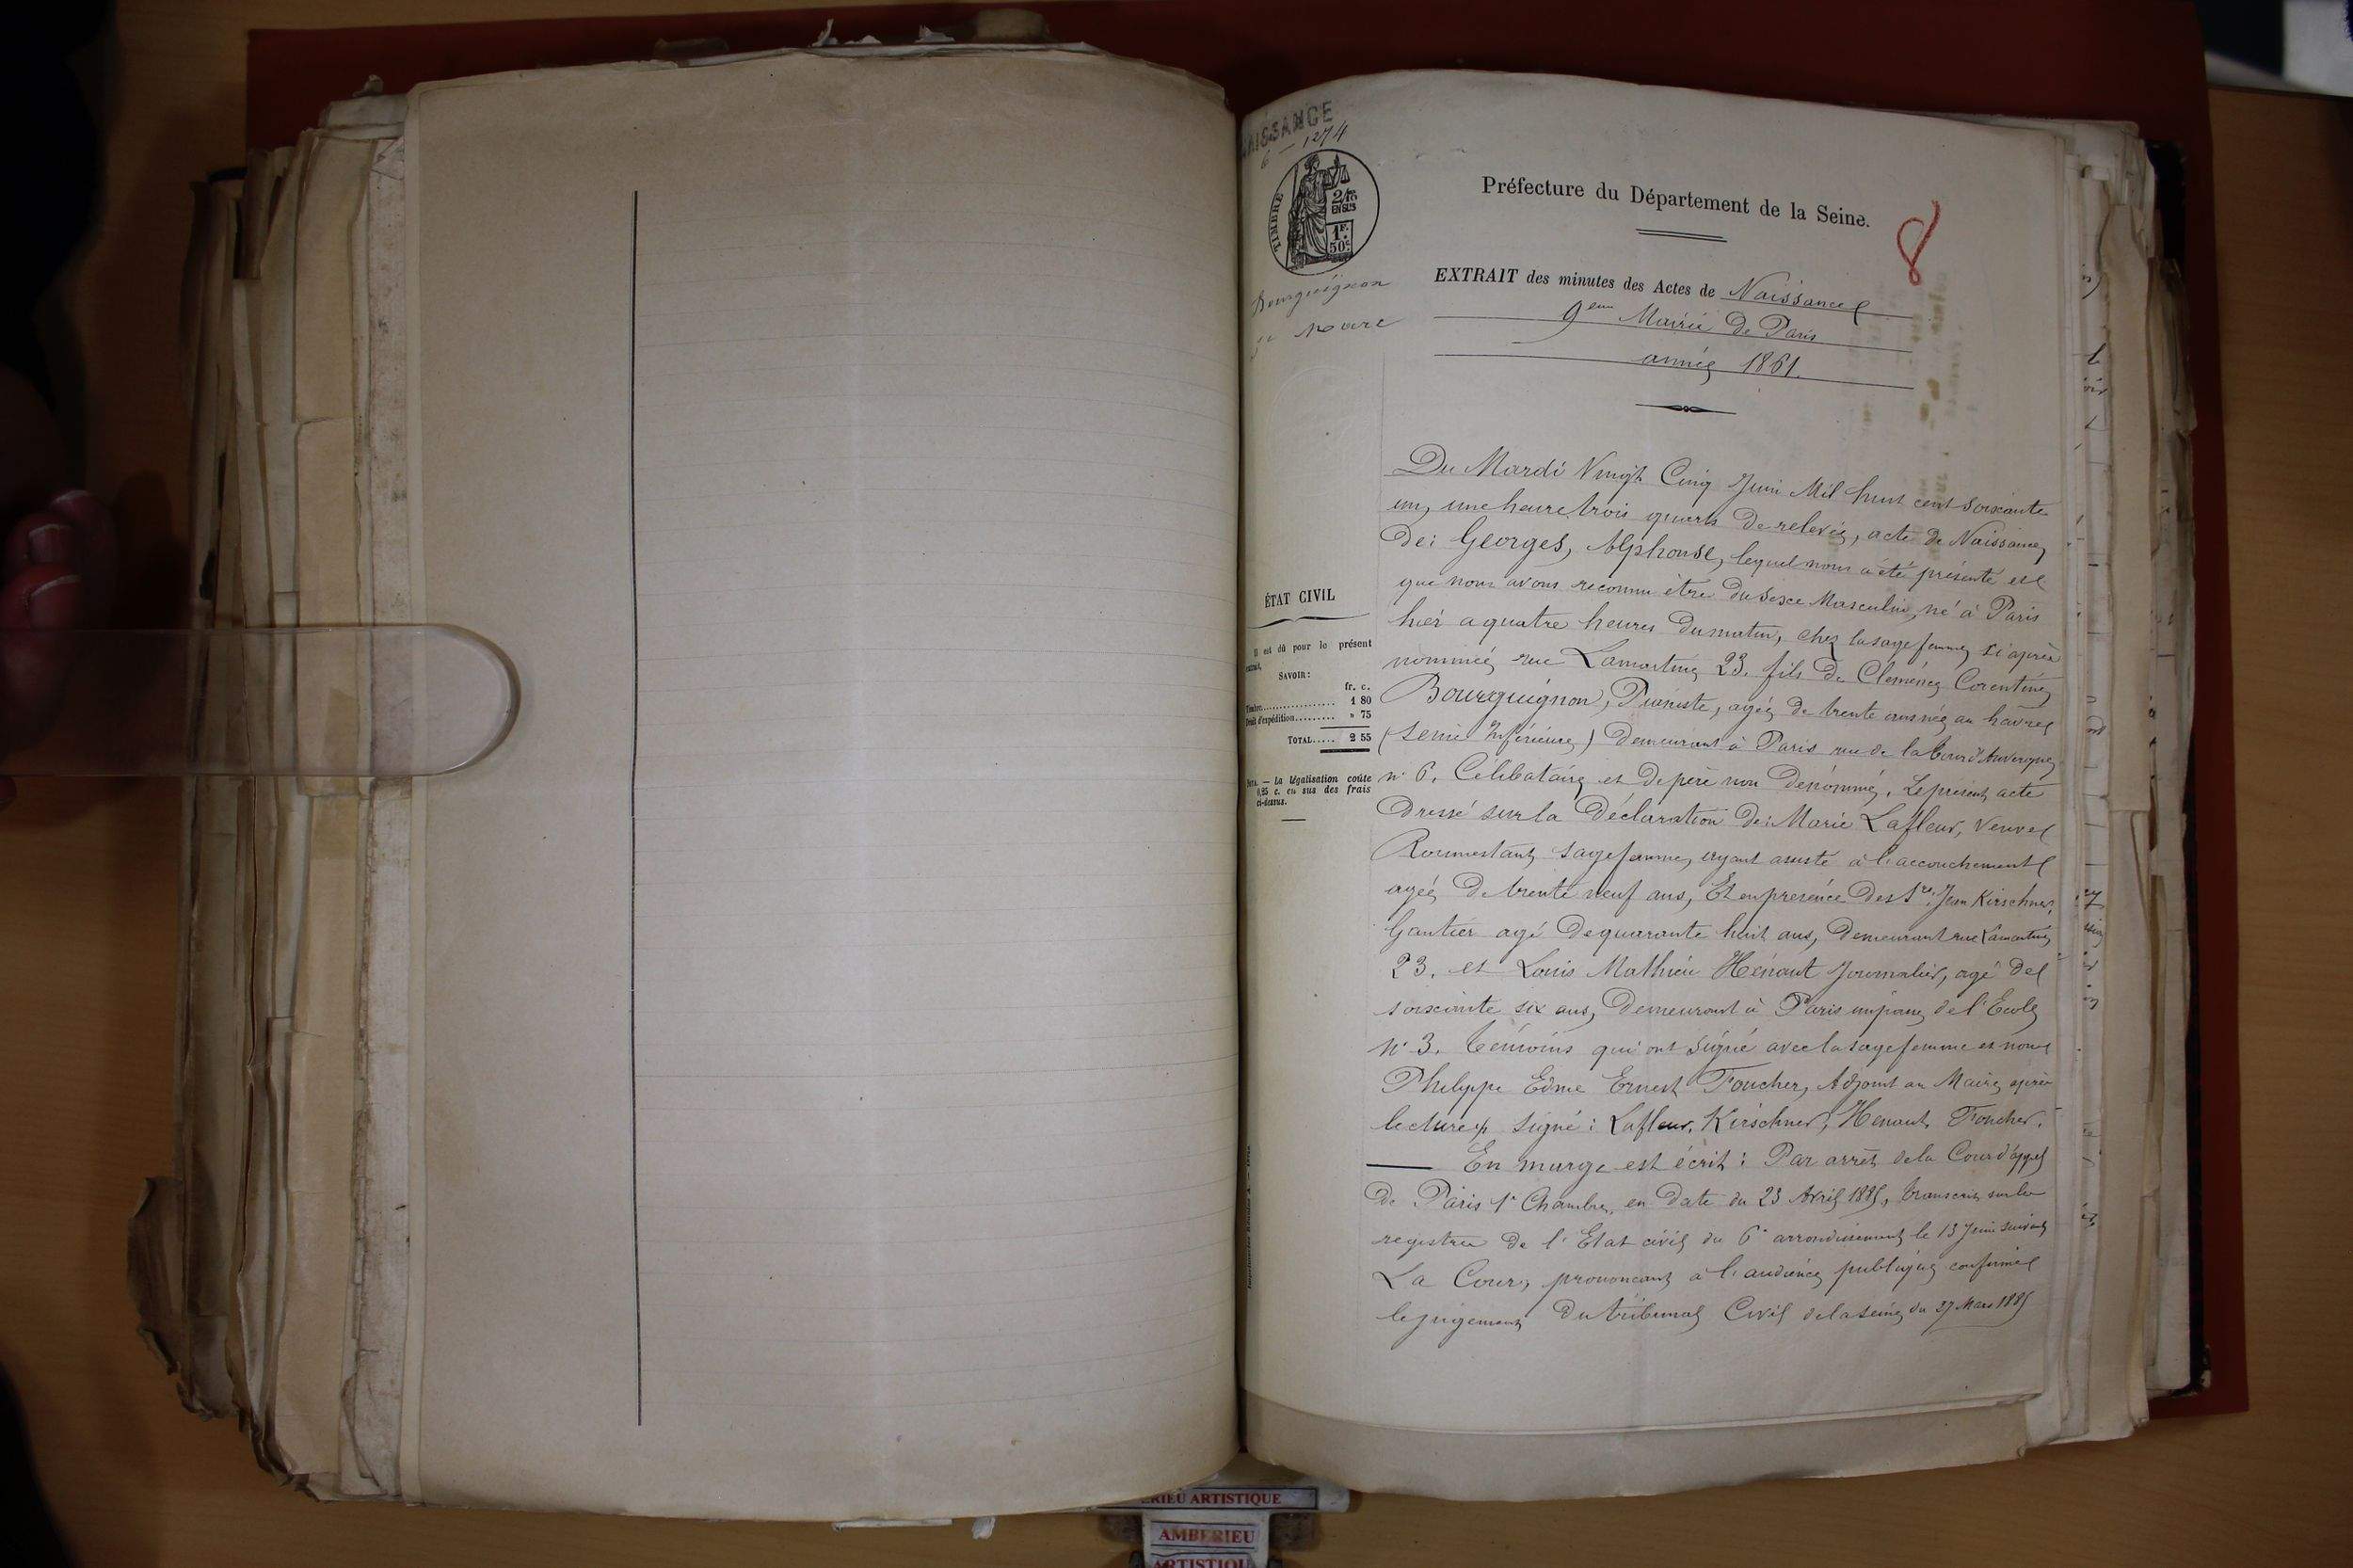 NAISSANCE
6 — 1274
TIMBRE
2/10
EN SUS
1F.
50c.
Bourguignon
St Marc
Préfecture du Département de la Seine.
8
EXTRAIT des minutes des Actes de Naissance
9eme Mairie de Paris
année 1861.
Du Mardi Vingt Cinq Juin Mil huit cent soixante
un, une heure trois quarts de relevée, acte de Naissance
de: Georges, Alphonse, lequel nous a été présenté et
que nous avons reconnu être du sexe Masculin, né à Paris
hièr a quatre heures du matin, chez la sage femme ci après
nommée rue Lamartine 23. fils de Clémence Corentine
Bourguignon, Pianiste, agée de trente ans née au havre
(Seine Inférieure) demeurant à Paris rue de la tour d'Auvergne
n° 6. Célibataire et de père non dénommé. Le présent acte
dressé sur la déclaration de: Marie Lafleur, veuve
Roumestant sage femme, ayant assisté à l'accouchement
agée de trente neuf ans, Et en présence des Srs. Jean Kirschner,
Gantier agé de quarante huit ans, demeurant rue Lamartine
23. et Louis Mathieu Henaut Journalier, agé de
soixante six ans, demeurant à Paris impasse de l'Ecole
n° 3. témoins qui ont signé avec la sage femme et nous
Philippe Edme Ernest Foucher, Adjoint au Maire après
lecture signé: Lafleur, Kirschner, Henaut, Foucher.
En marge est écrit: Par arrêt de la Cour d'appel
de Paris 1e Chambre, en date du 23 Avril 1885, transcrit sur les
registres de l'Etat civil du 6e arrondissement le 13 Juin suivant
La Cour, prononçant à l'audience publique confirme
le jugement du tribunal Civil de la Seine du 27 Mars 1885
ÉTAT CIVIL
Il est dû pour le présent
extrait,
SAVOIR:
fr. c.
Timbre.................. 1 80
Droit d'expédition......... » 75
TOTAL..... 2 55
NOTA. — La légalisation coûte
0,25 c. en sus des frais
ci-dessus.
ERIEU ARTISTIQUE
AMBERIEU
ARTISTIQU